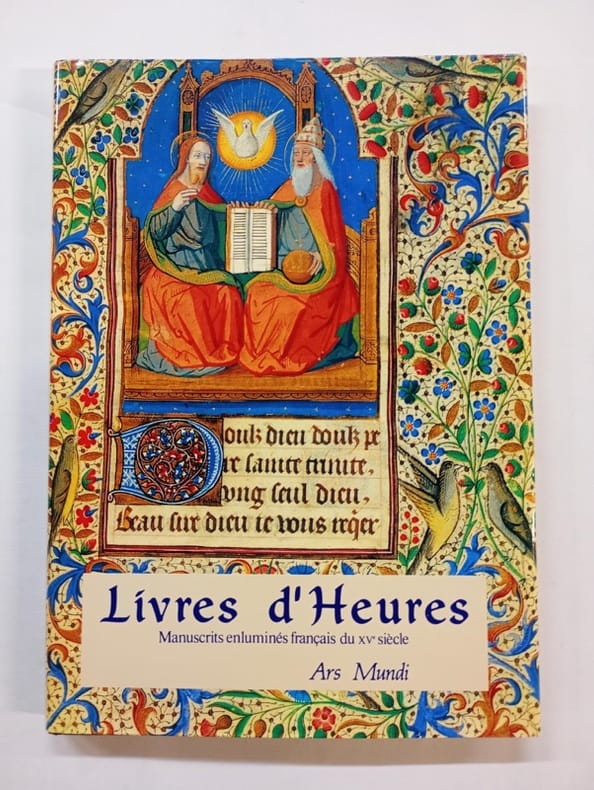 Doulz dieu doulz pe
re saincte trinite,
vng seul dieu,
Beau sire dieu ie vous reqer
Livres d'Heures
Manuscrits enluminés français du XVe siècle
Ars Mundi